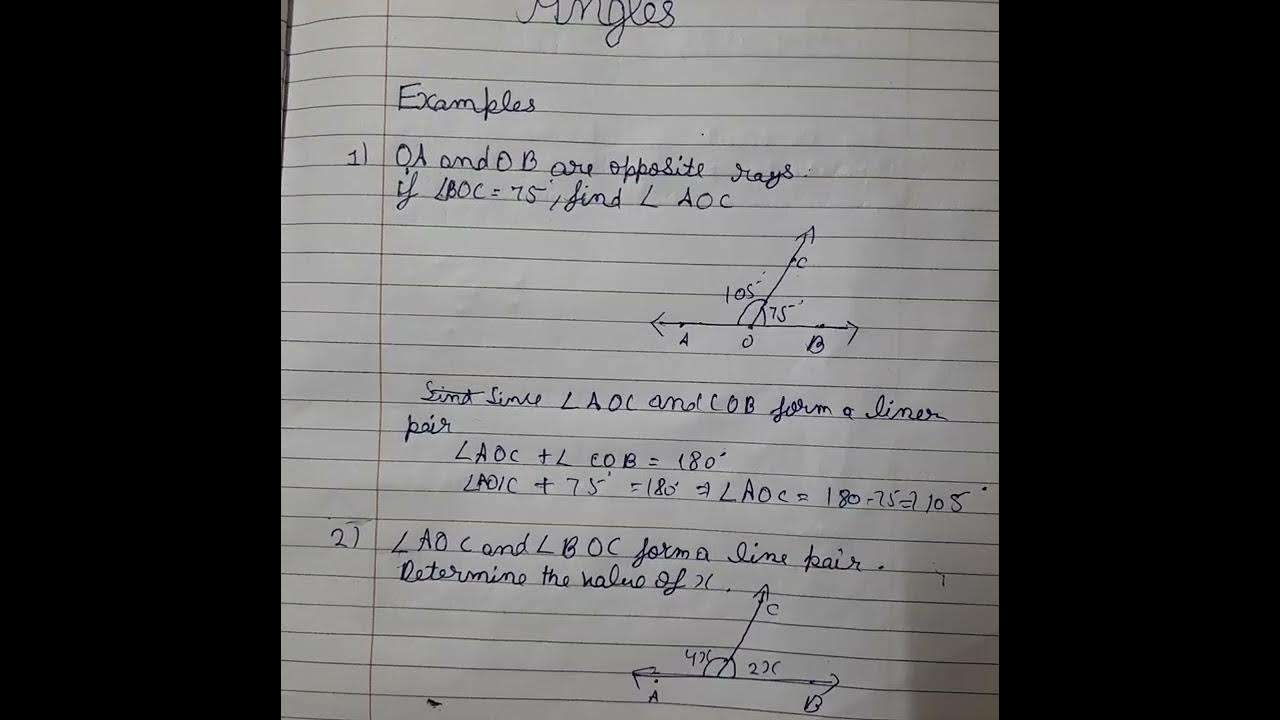 Angles
Examples
1) OA and OB are opposite rays.
if ∠BOC = 75°, find ∠ AOC
C
105°
75°
A O B
Since ∠AOC and COB form a liner
pair
∠AOC + ∠ COB = 180°
∠AOC + 75° = 180° ⇒ ∠AOC = 180-75 ⇒ 105°
2) ∠AOC and ∠BOC form a line pair.
Determine the value of x.
C
4x 2x
A B